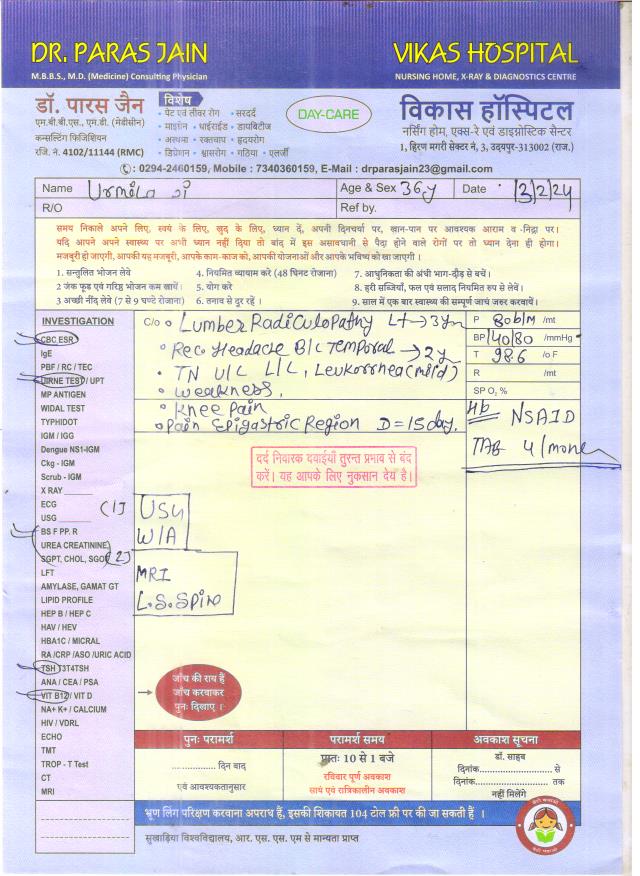 DR. PARAS JAIN
M.B.B.S., M.D. (Medicine) Consulting Physician
VIKAS HOSPITAL
NURSING HOME, X-RAY & DIAGNOSTICS CENTRE
डॉ. पारस जैन
एम.बी.बी.एस., एम.डी. (मेडीसीन)
कन्सल्टिंग फिजिशियन
रजि. नं. 4102/11144 (RMC)
विशेष
• पेट एवं लीवर रोग • सरदर्द
• माइग्रेन • थाईराईड • डायबिटीज
• अस्थमा • रक्तचाप • हृदयरोग
• डिप्रेशन • श्वासरोग • गठिया • एलर्जी
DAY-CARE
विकास हॉस्पिटल
नर्सिंग होम, एक्स-रे एवं डाइग्नोस्टिक सेन्टर
1, हिरण मगरी सेक्टर नं, 3, उदयपुर-313002 (राज.)
: 0294-2460159, Mobile : 7340360159, E-Mail : drparasjain23@gmail.com
Name Urmila Ji
Age & Sex 36y
Date 13/2/24
R/O
Ref by.
समय निकाले अपने लिए, स्वयं के लिए, खुद के लिए, ध्यान दें, अपनी दिनचर्या पर, खान-पान पर आवश्यक आराम व निद्रा पर।
यदि आपने अपने स्वास्थ्य पर अभी ध्यान नहीं दिया तो बांद में इस असावधानी से पैदा होने वाले रोगों पर तो ध्यान देना ही होगा।
मजबूरी हो जाएगी, आपकी यह मजबूरी, आपके काम-काज को, आपकी योजनाओं और आपके भविष्य को खा जाएगी।
1. सन्तुलित भोजन लेवे
2 जंक फूड एवं गरिष्ठ भोजन कम खायें।
3 अच्छी नींद लेवे (7 से 9 घण्टे रोजाना)
4. नियमित व्यायाम करे (48 मिनट रोजाना)
5. योग करे
6. तनाव से दुर रहें ।
7. आधुनिकता की अंधी भाग-दौड़ से बचें।
8. हरी सब्जियाँ, फल एवं सलाद नियमित रुप से लेवें।
9. साल में एक बार स्वास्थ की सम्पूर्ण जाचं जरुर करवायें।
INVESTIGATION
CBC ESR
IgE
PBF / RC / TEC
URINE TEST / UPT
MP ANTIGEN
WIDAL TEST
TYPHIDOT
IGM / IGG
Dengue NS1-IGM
Ckg - IGM
Scrub - IGM
X RAY
ECG
USG
BS F PP. R
UREA CREATININE
SGPT, CHOL, SGOT
LFT
AMYLASE, GAMAT GT
LIPID PROFILE
HEP B / HEP C
HAV / HEV
HBA1C / MICRAL
RA /CRP /ASO /URIC ACID
TSH T3T4TSH
ANA / CEA / PSA
VIT B12 / VIT D
NA+ K+ / CALCIUM
HIV / VDRL
ECHO
TMT
TROP - T Test
CT
MRI
C/o • Lumber Radiculopathy Lt → 3yr
• Rec Headache B/L Temporal → 2y
• TN U/L L/L, Leukorrhea (mild)
• Weakness,
• Knee Pain
• Pain Epigastric Region D = 15 day.
P 80b/M /mt
BP 140/80 /mmHg
T 98.6 /o F
R /mt
SP O, %
H/o NSAID
TAB 4/month
दर्द निवारक दवाईयाँ तुरन्त प्रभाव से बंद
करें। यह आपके लिए नुकसान देय है।
(1) USG
W/A
(2) MRI
L.S. Spine
जाँच की राय हैं
जाँच करवाकर
पुनः दिखाए ।
पुनः परामर्श
................ दिन बाद
एवं आवश्यकतानुसार
परामर्श समय
प्रातः 10 से 1 बजे
रविवार पूर्ण अवकाश
सायं एवं रात्रिकालीन अवकाश
अवकाश सूचना
डॉ. साहब
दिनांक........................ से
दिनांक........................ तक
नहीं मिलेंगे
भ्रूण लिंग परिक्षण करवाना अपराध हैं, इसकी शिकायत 104 टोल फ्री पर की जा सकती हैं ।
सुखाड़िया विश्वविद्यालय, आर. एस. एस. एम से मान्यता प्राप्त